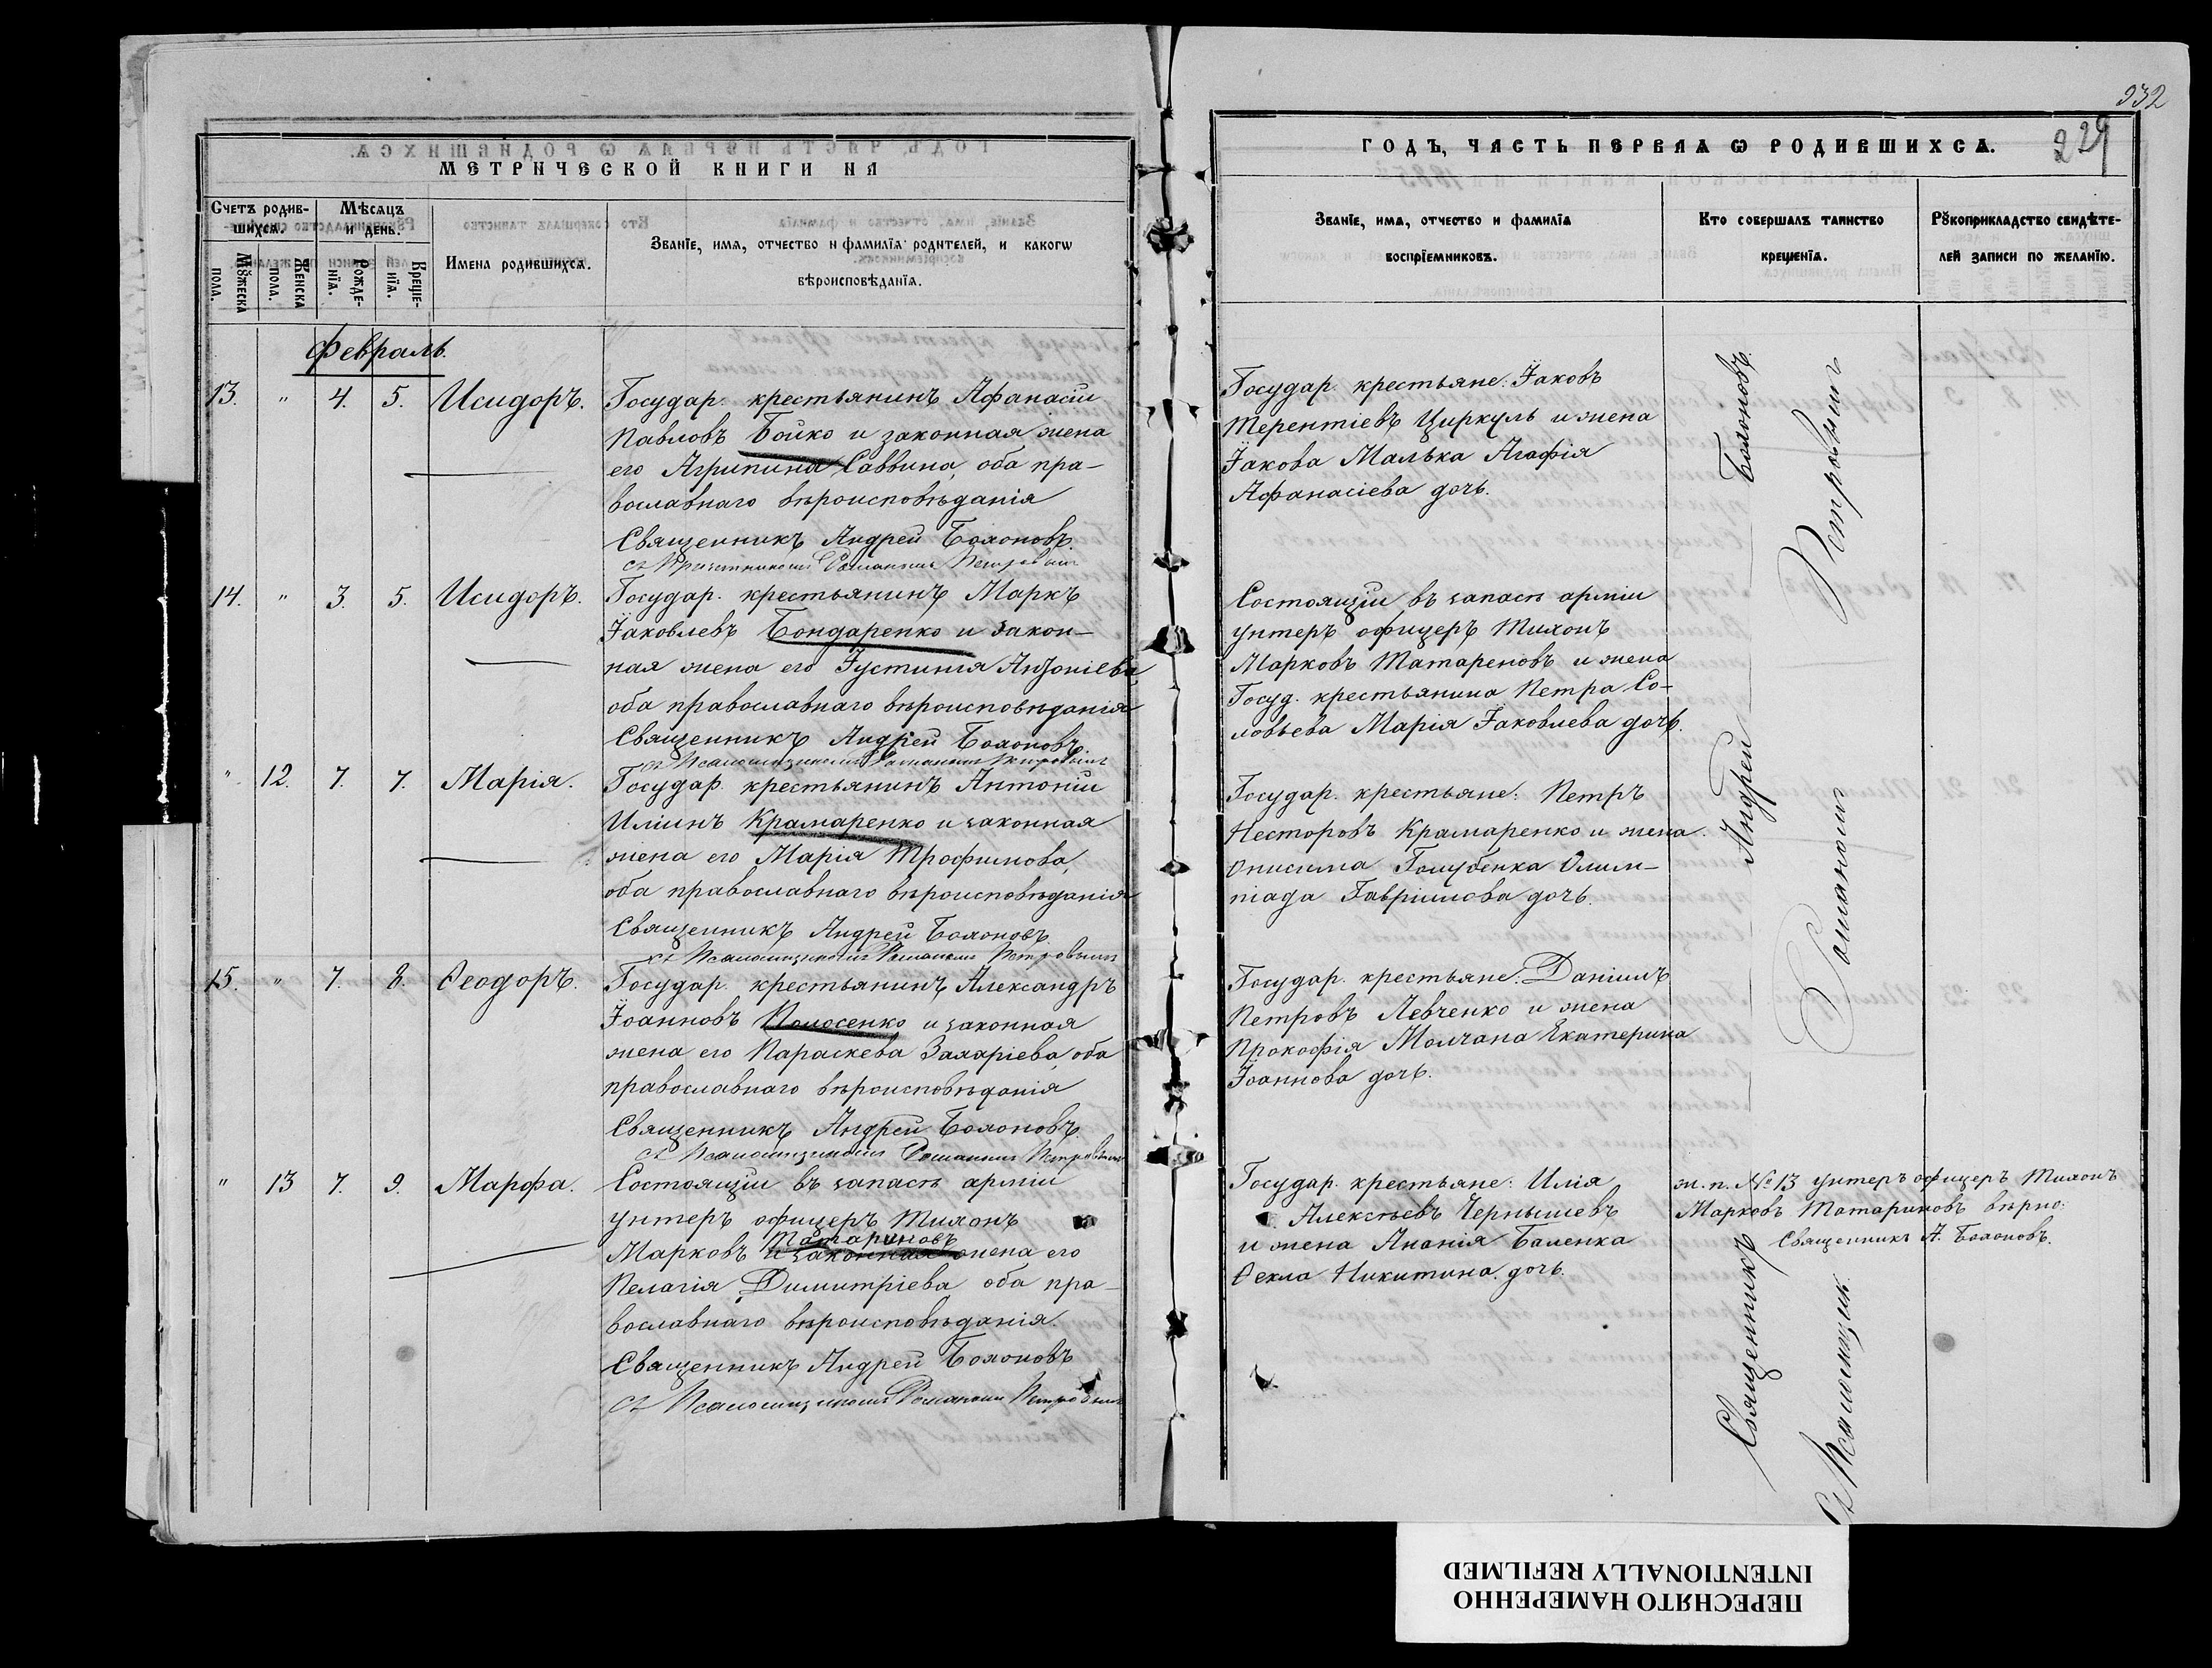 МЕТРИЧЕСКОЙ КНИГИ НА
Счетъ родив-
шихсѧ.
Мѣсѧцъ
и день.
Мꙋжеска
пола.
Женска
пола.
Рожде-
нїѧ.
Креще-
нїѧ.
Имена родившихсѧ.
Званїе, имѧ, отчество и фамилїѧ родителей, и какогѡ
вѣроисповѣданїѧ.
Февраль.
13. " 4. 5. Исидоръ.
Государ. крестьянинъ Афанасій
Павловъ Бойко и законная жена
его Агрипина Саввина, оба пра-
вославнаго вѣроисповѣданія
Священникъ Андрей Бологовъ.
14. " 3. 5. Исидоръ.
Государ. крестьянинъ Маркъ
Іаковлевъ Бондаренко и закон-
ная жена его Іустинія Антоніева
оба православнаго вѣроисповѣданія
Священникъ Андрей
съ Псаломщикомъ Романомъ Петровымъ
" 12. 7. 7. Марія.
Государ. крестьянинъ Антоній
Иліинъ Крамаренко и законная
жена его Марія Трофимова,
оба православнаго вѣроисповѣданія
Священникъ Андрей
съ Псаломщикомъ Романомъ Петровымъ
15. " 7. 8. Ѳеодоръ.
Государ. крестьянинъ Александръ
Іоанновъ Колосенко и законная
жена его Параскева Захаріева, оба
православнаго вѣроисповѣданія
Священникъ Андрей
съ Псаломщикомъ Романомъ Петровымъ
" 13 7. 9. Марфа.
Состоящій въ запасѣ арміи
унтеръ офицеръ Тихонъ
Татариновъ
Марковъ и законная жена его
Пелагія Димитріева оба пра-
вославнаго вѣроисповѣданія.
Священникъ Андрей
съ Псаломщикомъ Романомъ Петровымъ
932
229
ГОДЪ, ЧАСТЬ ПЕРВАѦ Ѡ РОДИВШИХСѦ.
Званїе, имѧ, отчество и фамилїѧ
воспрїемниковъ.
Кто совершалъ таинство
крещенїѧ.
Рꙋкоприкладство свидѣте-
лей записи по желанїю.
Государ. крестьяне: Іаковъ
Терентіевъ Циркуль и жена
Іакова Малька Агафія
Афанасіева дочь.
Состоящій въ запасѣ арміи
унтеръ офицеръ Тихонъ
Марковъ Татареновъ и жена
Госуд. крестьянина Петра Со-
ловьева Марія Іаковлева дочь.
Государ. крестьяне: Петръ
Несторовъ Крамаренко и жена
Онисима Голубенка Олим-
піада Гавріилова дочь.
Государ. крестьяне: Даніилъ
Петровъ Левченко и жена
Прокофія Молчана Екатерина
Іоаннова дочь.
Государ. крестьяне: Илія
Алексѣевъ Чернышевъ
и жена Ананія Баленка
Ѳекла Никитина дочь.
ж. п. № 13 унтеръ офицеръ Тихонъ
Марковъ Татариновъ вѣрно:
Священникъ А.
Священникъ Андрей
съ Псаломщик. Романомъ Петровымъ
ПЕРЕСНЯТО НАМЕРЕННО
INTENTIONALLY REFILMED